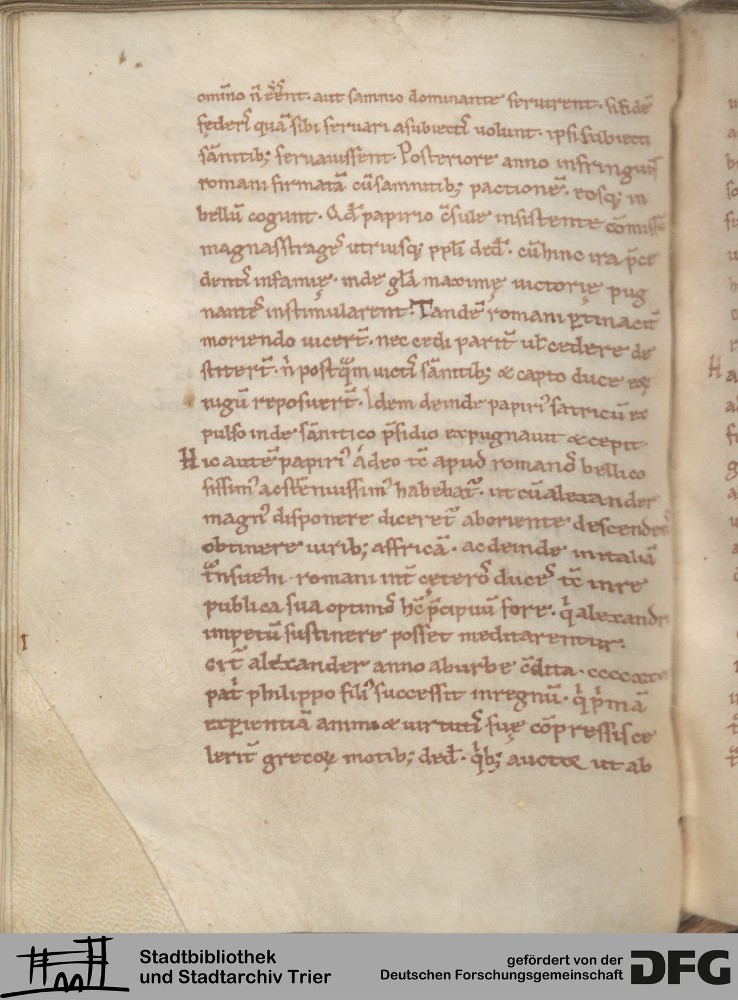 om̄ino n̄ eēnt. aut samnio dominante servirent. si fidē
fęderis quā sibi servari a subiectis volunt. ipsi subiecti
sānitib; servavissent. Posteriore anno infringunt
romani firmatā cū samnitib; pactionē. eosq; in
bellū cogunt. Qd̄ papirio c̄sule insistente cōmissū
magnas strages utriusq; ppl̄i ded̄. cū hinc ira p̄ce
dentis infamię. inde gl̄a maximę victorię pug
nantes instimularent. Tandē romani ptinacit̄
moriendo vicert̄. nec cedi parit̄ ul̄ cedere de
stitert̄. n̄ postq̄m victis sānitib; & capto duce eoꝝ
iugū reposuert̄. Idem deinde papiri᾽ satricū ex
pulso inde sānitico p̄sidio expugnavit & cepit.
Hic autē papiri᾽ ádeo tc̄ apud romanos bellico
sissim᾽ ac strenuissim᾽ habebat᾽. ut cū alexander
magn᾽ disponere diceret᾽ ab oriente descendens
obtinere virib; affricā. ac deinde in italiā
t̄nsvehi. romani int̄ cęteros duces tc̄ in re
publica sua optimos hc̄ p̄cipuū fore. q̄ alexandri
impetū sustinere posset meditarentur.
Git̄ alexander anno ab urbe c̄dita. ccccxxvi
pat̄ philippo fili᾽ successit in regnū. q̄ p̄mā
expientiā animi & virtutis suę cōpressis ce
lerit̄ grecoꝝ motib; ded̄. qb; auctor ut ab
H
I
Stadtbibliothek
und Stadtarchiv Trier
gefördert von der
Deutschen Forschungsgemeinschaft
DFG